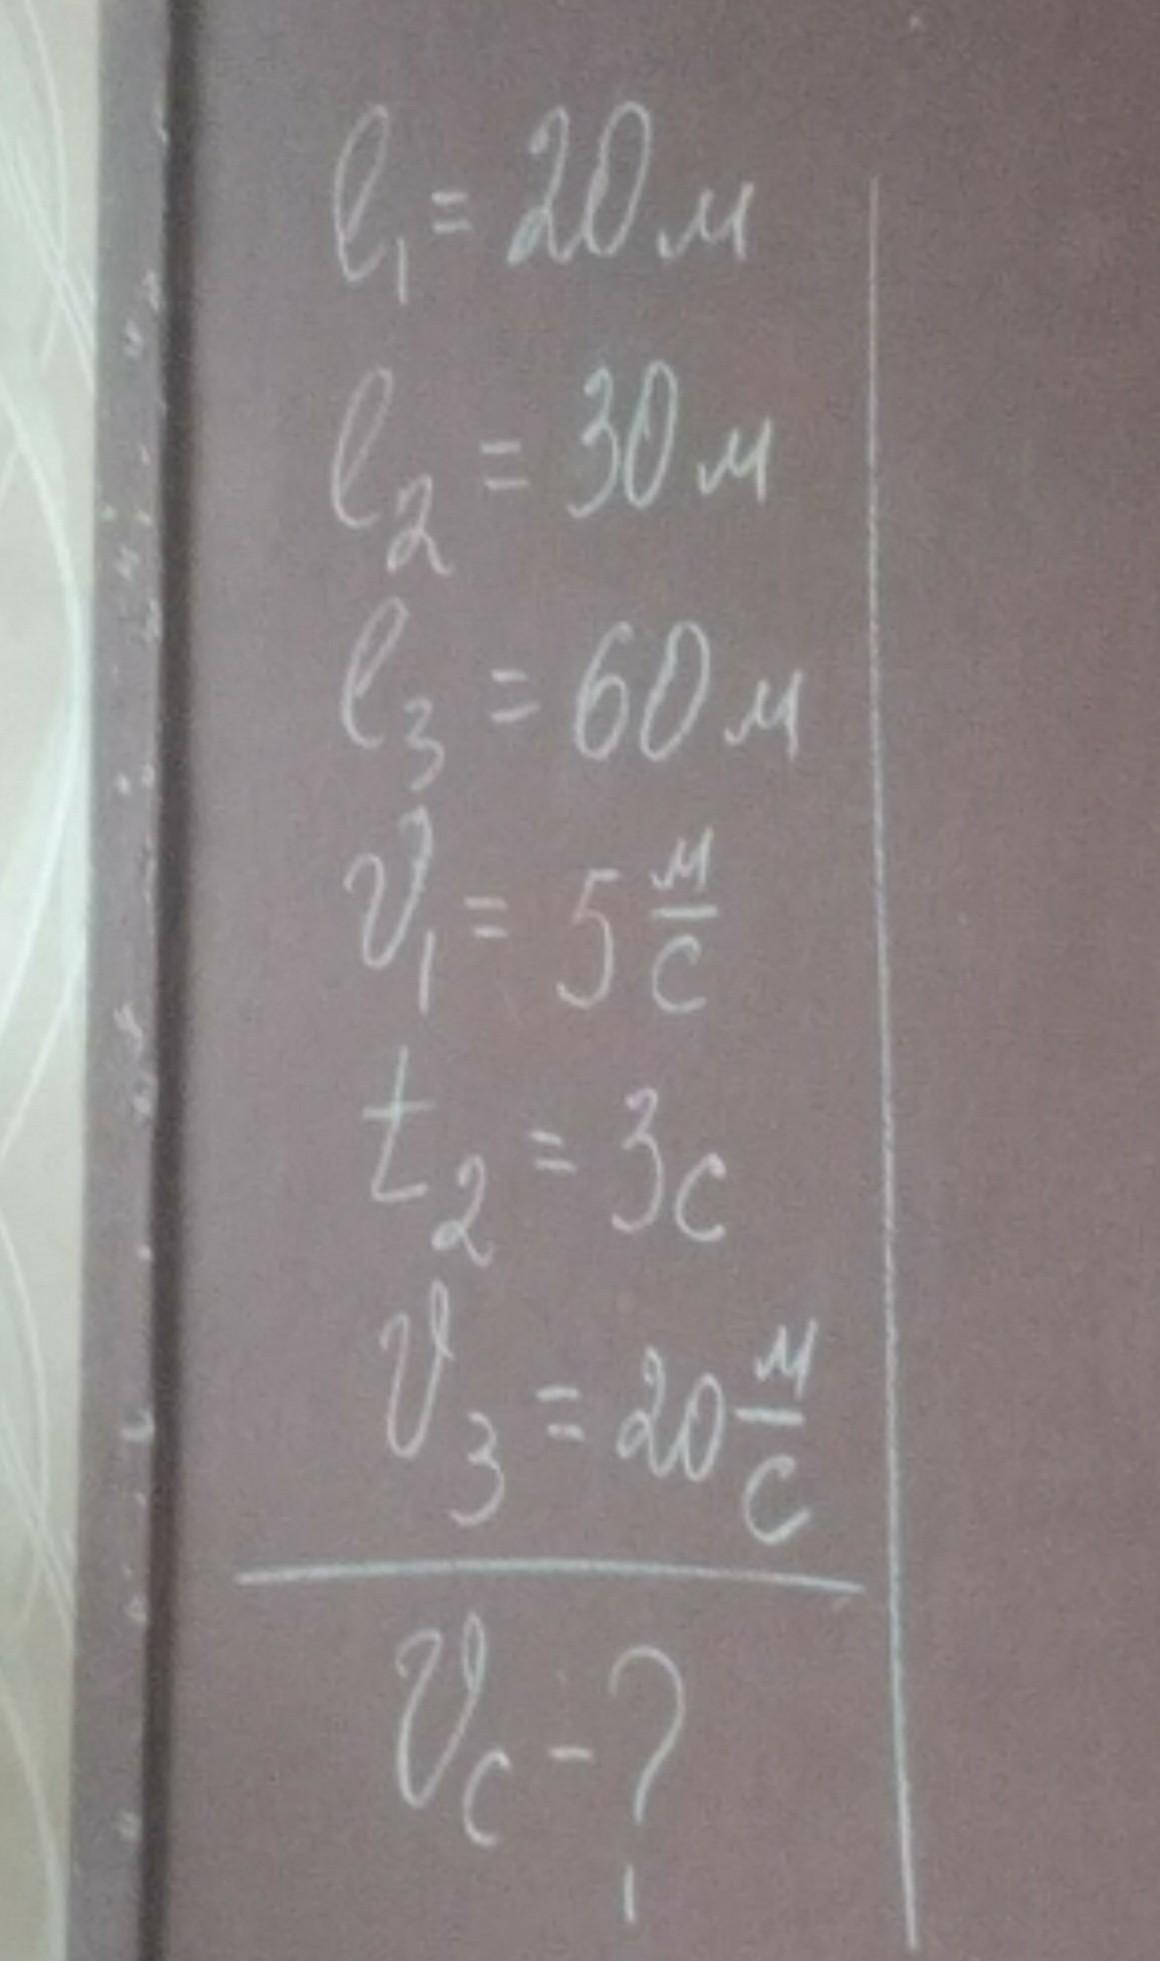 l₁ = 20 м
l₂ = 30 м
l₃ = 60 м
v₁ = 5 м/с
t₂ = 3 с
v₃ = 20 м/с
vс - ?